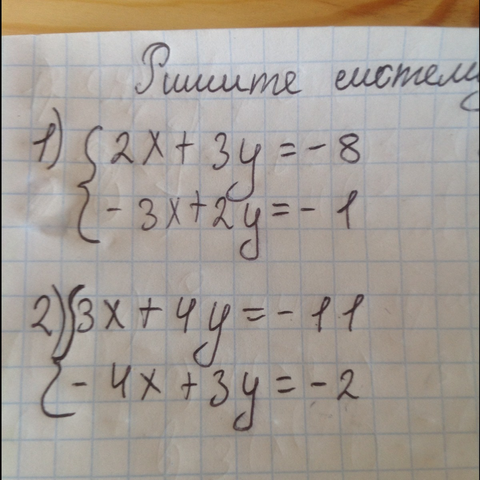 Решите систему
1) { 2x + 3y = - 8
- 3x + 2y = - 1
2) { 3x + 4y = - 11
- 4x + 3y = - 2